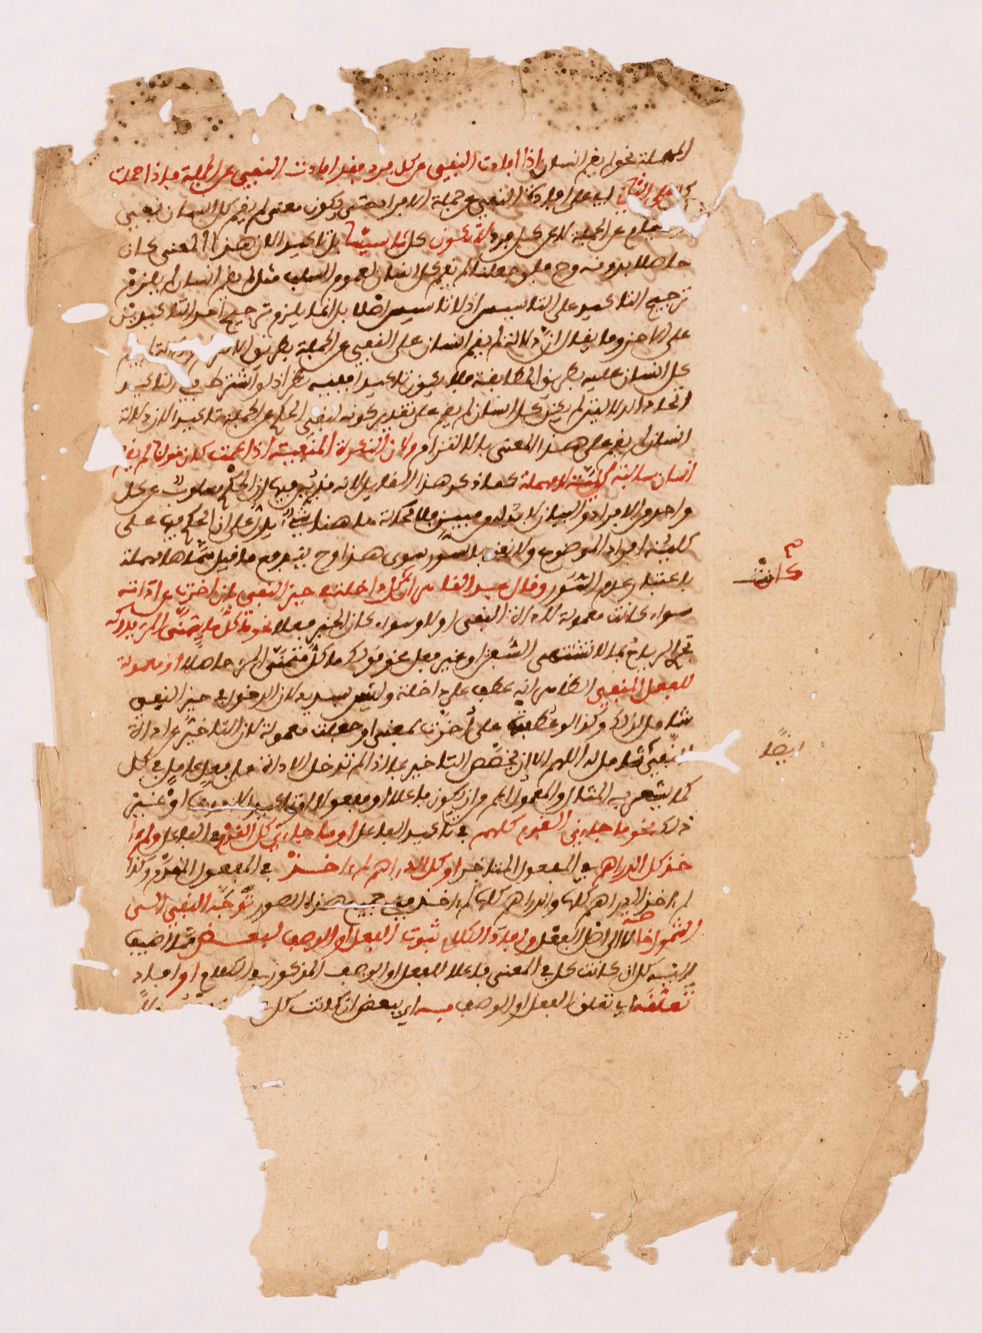 المهملة نحو لم يقم انسان اذا افادت النفي عن كل فرد فقد افادت النفي عن الجملة فاذا حملت
كل على الثاني اي على افادة النفي عن جملة الافراد حتى يكون معنى لم يقم كل انسان نفي
القيام عن الجملة لا عن كل فرد لا يكون كل تاسيسا بل تاكيدا لان هذا المعنى كان
حاصلا بدونه وح فلو جعلنا لم يقم كل انسان لعموم السلب مثل لم يقم انسان لم يلزم
ترجيح التاكيد على التاسيس اذ لا تاسيس اصلا بل انما يلزم ترجيح احد التاكيدين
على الاخر وما يقال ان دلالة لم يقم انسان على النفي عن الجملة بطريق
كل انسان عليه بطريق المطابقة فلا يكون تاكيدا ففيه نظر اذ لو اشترط في التاكيد
اتحاد الدلالتين لم يكن كل انسان لم يقم على تقدير كونه لنفي الحكم عن الجملة تاكيدا لان دلالة
انسان لم يقم على هذا المعنى بالالتزام ولان النكرة المنفية اذا عمت كان قولنا لم يقم
انسان سالبة كلية لا مهملة كما ذكر هذا القائل لانه قد بين فيها ان الحكم مسلوب عن كل
واحد من الافراد والبيان لا بد له من مبين ولا محالة ها هنا شيء يدل على ان الحكم فيها على
كلية افراد الموضوع ولا نعني بالسور سوى هذا وح يندفع ما قيل سماها مهملة
باعتبار عدم السور وقال عبد القاهر ان كل داخلة في حيز النفي بان اخرت عن اداته
سواء كانت معمولة لاداة النفي او لا وسواء كان الخبر فعلا نحو ما كل ما يتمنى المرء يدركه
تجري الرياح بما لا تشتهي السفن او غير فعل نحو قولك ما كل متمنى المرء حاصلا او معمولة
للفعل المنفي الظاهر انه عطف على داخلة وليس بسديد لان الدخول في حيز النفي
شامل لذلك وكذا لو عطفت على اخرت بمعنى او جعلت معمولة لان التاخير عن اداة
النفي شامل له اللهم الا ان يخصص التاخير بما اذا لم تدخل الاداة على فعل عامل في كل
كما يشعر به المثال والمعمول اعم من ان يكون فاعلا او مفعولا او تاكيدا لاحدهما او غير
ذلك نحو ما جاءني القوم كلهم في تاكيد الفاعل او ما جاءني كل القوم في الفاعل ولم ا
خذ كل الدراهم في المفعول المتاخر او كل الدراهم لم اخذ في المفعول المقدم وكذا
لم اخذ الدراهم كلها والدراهم كلها لم اخذ ففي جميع هذه الصور توجه النفي الى
الشمول خاصة لا الى اصل الفعل وافاد الكلام ثبوت الفعل او الوصف لبعض مما اضيف
اليه كل ان كانت كل في المعنى فاعلا للفعل او الوصف المذكور في الكلام او افاد
تعلقه اي تعلق الفعل او الوصف به اي ببعض ان كانت كل
كانت
ايضا